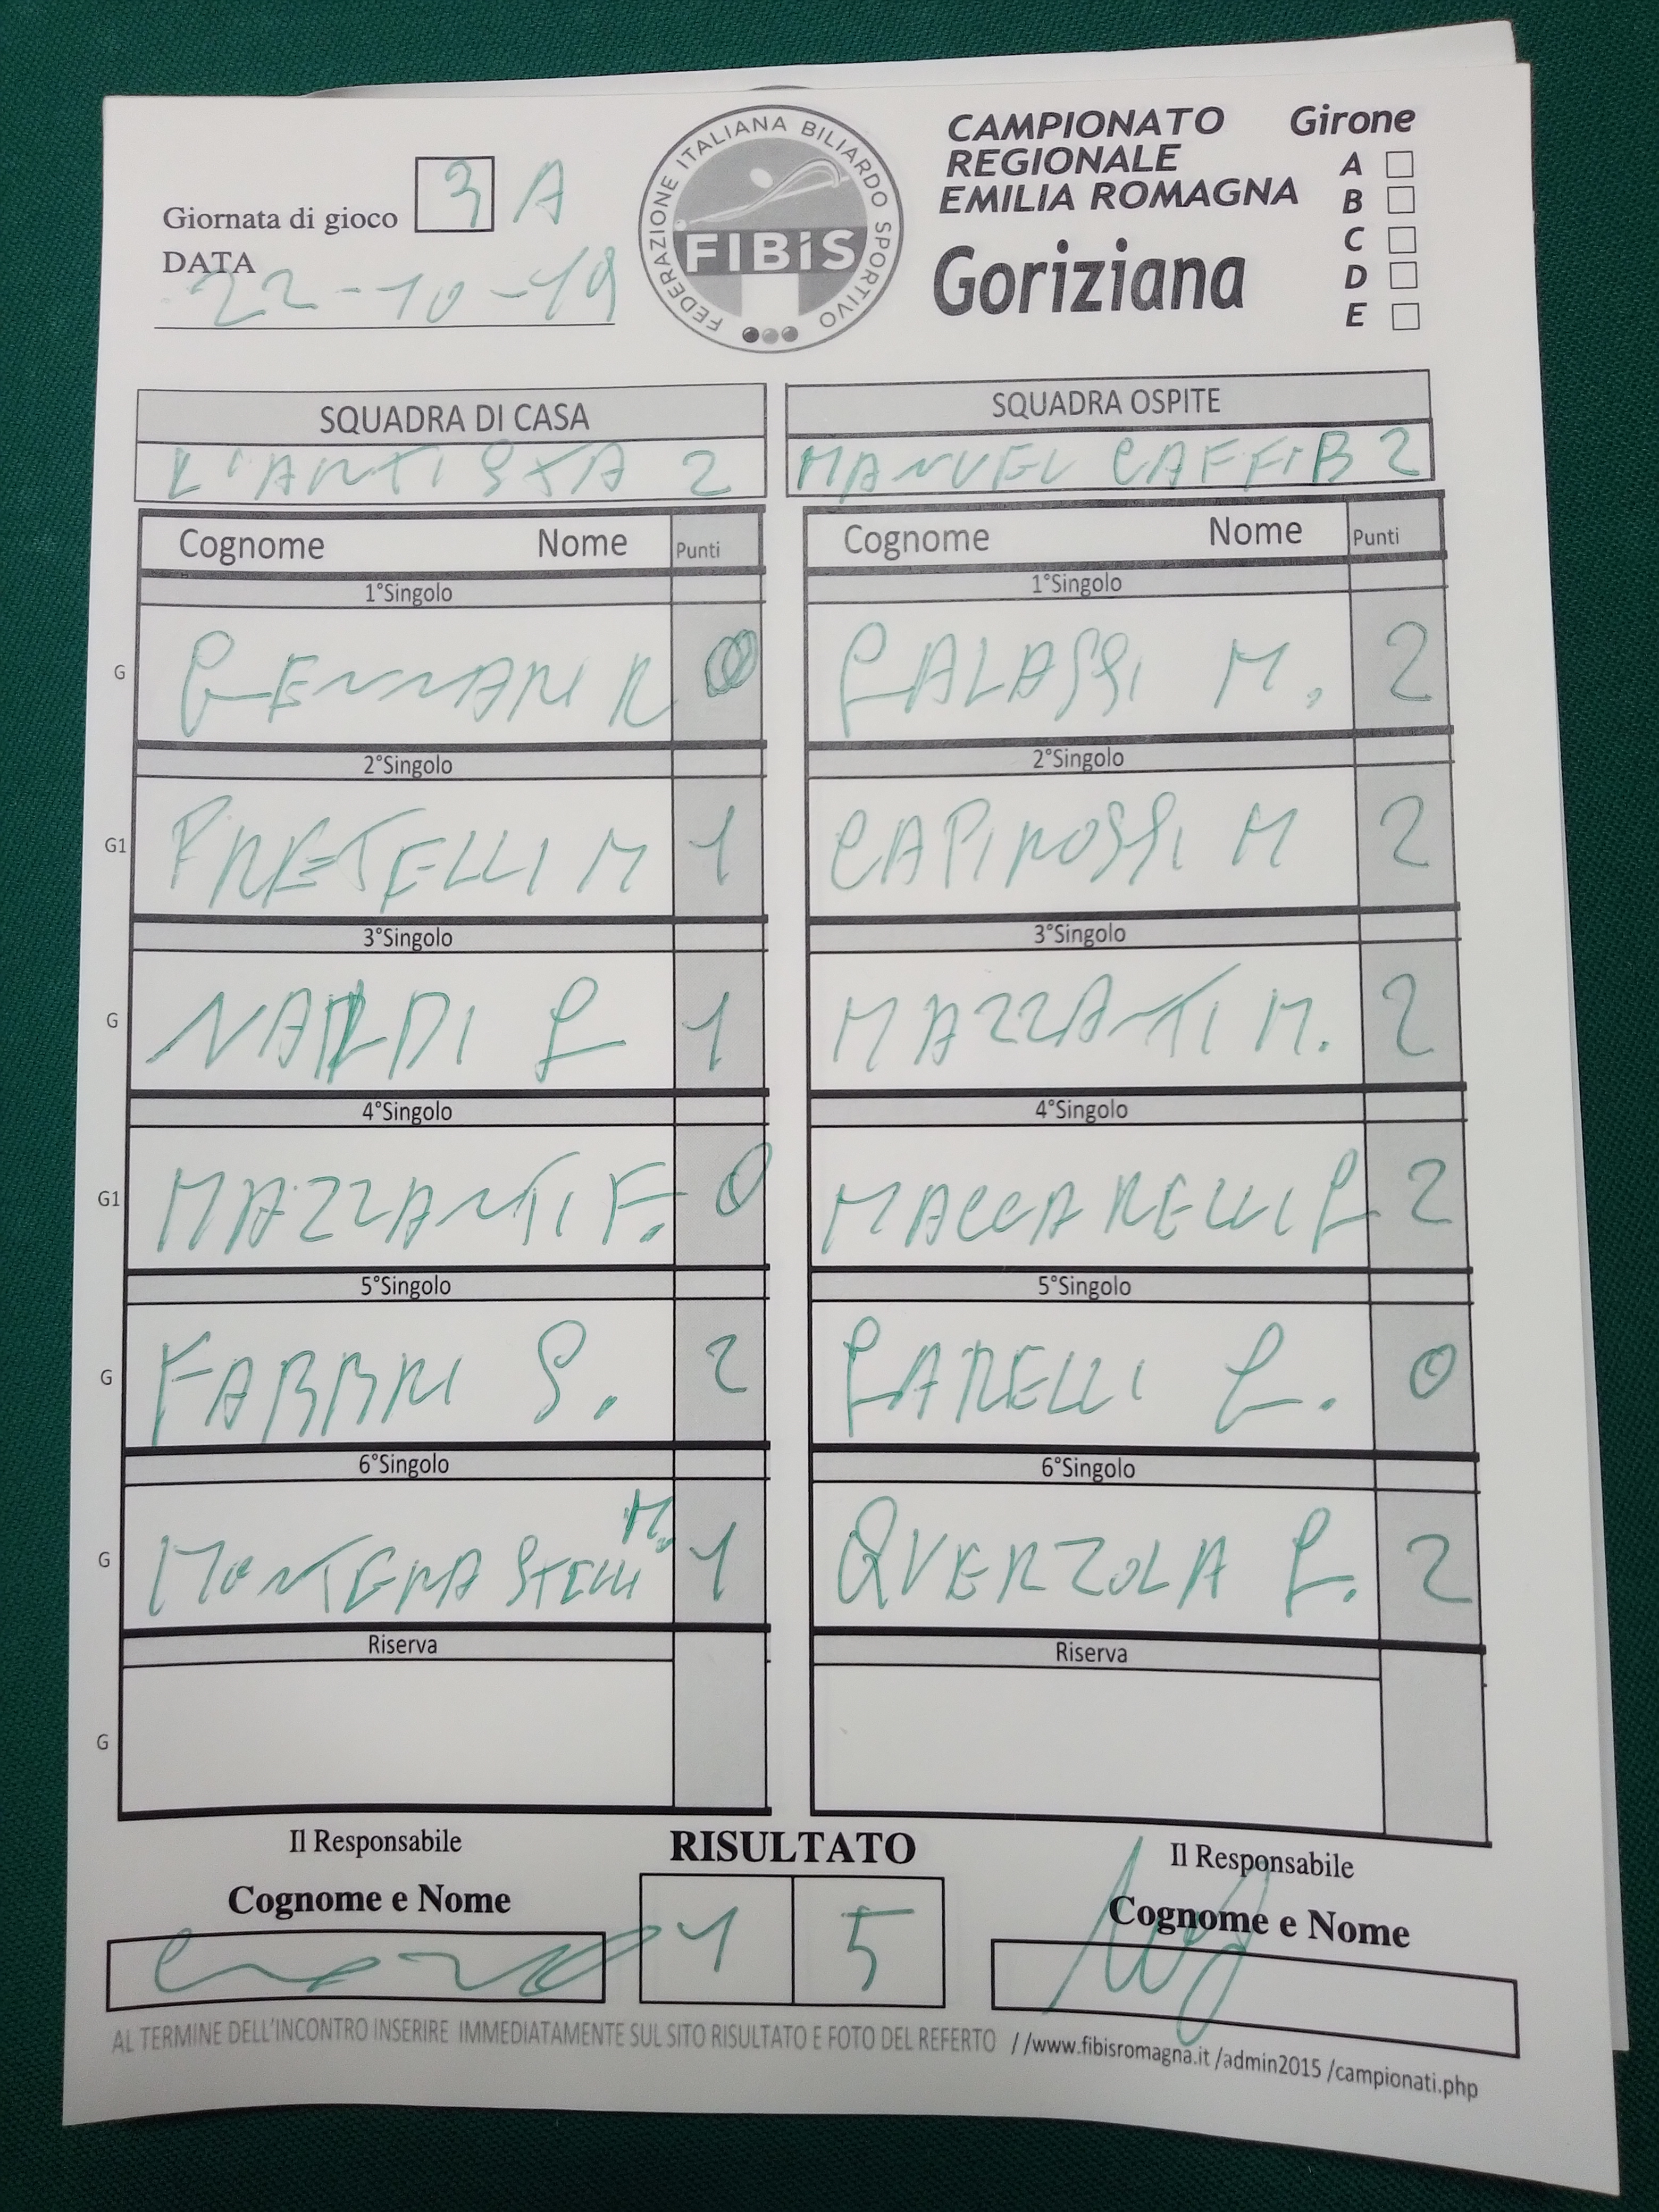 CAMPIONATO Girone
REGIONALE
EMILIA ROMAGNA
Goriziana
A
B
C
D
E
FEDERAZIONE ITALIANA BILIARDO SPORTIVO
FIBiS
Giornata di gioco 3 A
DATA
22-10-19
SQUADRA DI CASA SQUADRA OSPITE
L'ARTISTA 2 MANUEL CAFFI B 2
Cognome Nome Punti Cognome Nome Punti
1°Singolo 1°Singolo
G GENNARI R 0 GALASSI M. 2
2°Singolo 2°Singolo
G1 FRETELLI M 1 CAPIROSSI M 2
3°Singolo 3°Singolo
G NARDI G 1 MAZZANTI M. 2
4°Singolo 4°Singolo
G1 MAZZANTI F. 0 MACCARELLI G 2
5°Singolo 5°Singolo
G FABBRI S. 2 GARELLI G. 0
6°Singolo 6°Singolo
G MONTERASTELLI M. 1 QUERZOLA G. 2
Riserva Riserva
G
Il Responsabile RISULTATO Il Responsabile
Cognome e Nome 1 5 Cognome e Nome
AL TERMINE DELL'INCONTRO INSERIRE IMMEDIATAMENTE SUL SITO RISULTATO E FOTO DEL REFERTO //www.fibisromagna.it /admin2015 /campionati.php